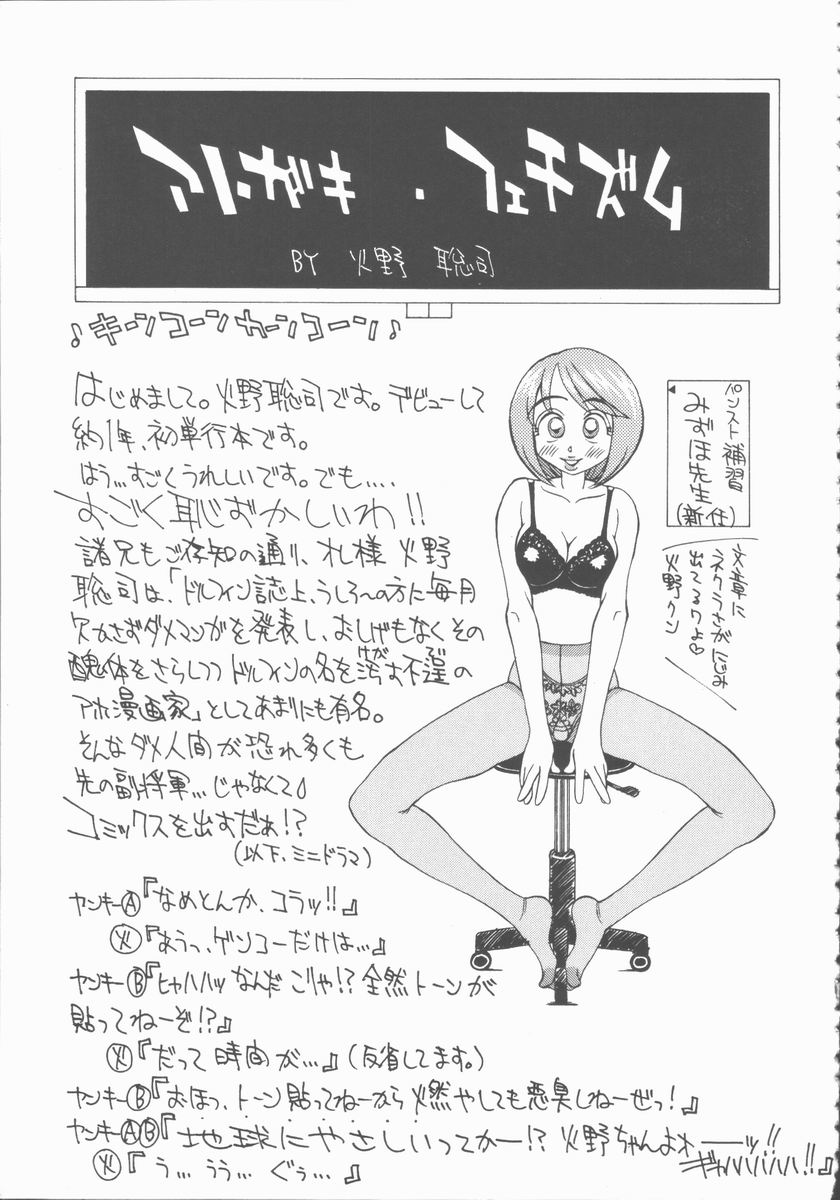 BY 火野 聡司
♪キーンコーンカーンコーン♪
はじめまして。火野聡司です。デビューして
約1年、初単行本です。
はう…すごくうれしいです。でも‥‥
すごく恥ずかしいわ!!
諸兄もご存知の通り、オレ様 火野
聡司は、「ドルフィン誌上、うしろ〜の方に毎月
欠かさずダメマンガを発表し、おしげもなくその
醜体をさらしつつドルフィンの名を汚す不逞の
アホ漫画家」としてあまりにも有名。
そんなダメ人間が恐れ多くも
先の副将軍…じゃなくて♪
コミックスを出すだぁ!?
(以下、ミニドラマ)
ヤンキーⒶ『なめとんか、コラッ!!』
㊋『あうっ、ゲンコーだけは…』
ヤンキーⒷ『ヒャハハッ なんだ こりゃ!? 全然トーンが
貼ってねーぞ!?』
㊋『だって 時間が…』(反省してます。)
ヤンキーⒷ『おほっ、トーン貼ってねーから 燃やしても悪臭しねーぜっ!』
ヤンキーⒶⒷ『地球にやさしいってかー!? 火野ちゃんよォーーッ!!
ギャハハハハ!!』
㊋『う… うう… ぐぅ…』
パンスト補習
みずほ先生
(新任)
文章に
ネクラさがにじみ
出てるワよ♡
火野クン